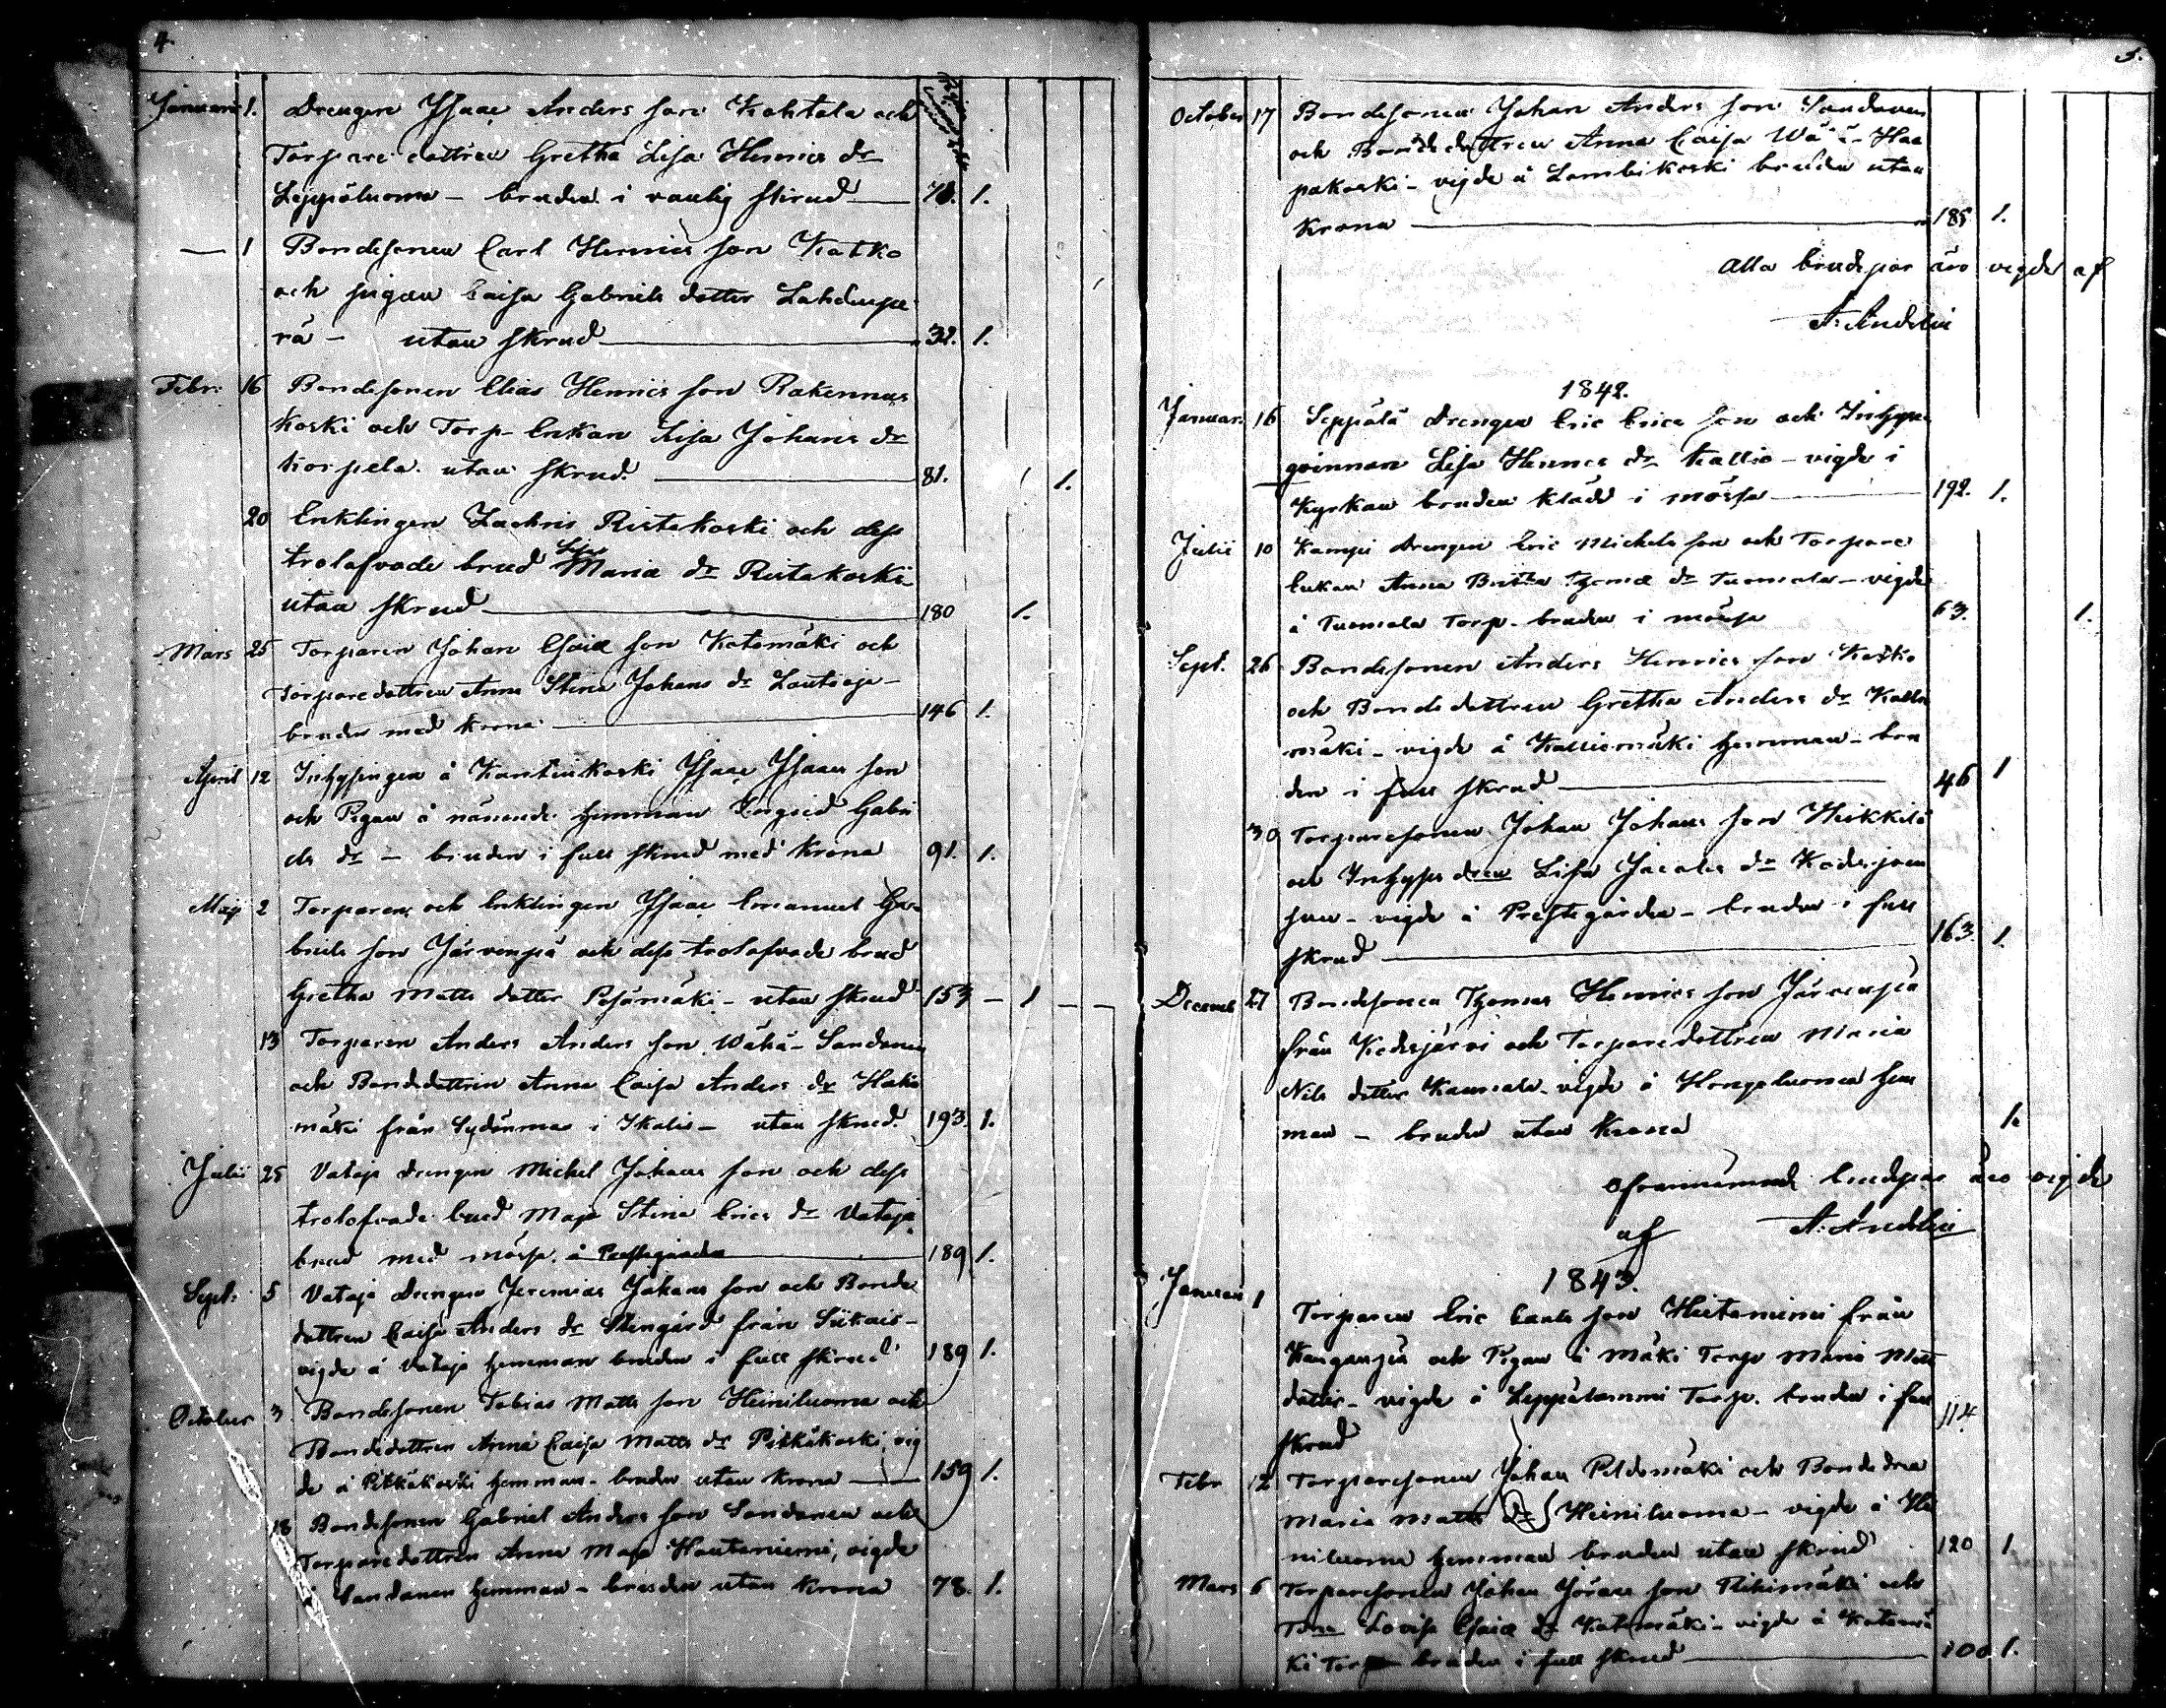 4.
Januarii 1. Drengen Isaac Anders son Kohtala och
Torpare dottren Gretha Lisa Henrics dr
Leppäluoma - bruden i vanlig skrud 78. 1.
— 1 Bondesonen Carl Henrics son Katko
och pigan Caisa Gabriels dotter Lahdenpe
rä - utan skrud 32. 1.
Febr: 16 Bondesonen Elias Henrics son Rakennus
koski och Torp. Enkan Lisa Johans dr
Korpela utan skrud. 81. 1.
20 Enklingen Zachris Ristakoski och dess
trolofvade brud Lisa Maria dr Ristakoski
utan skrud 180 1.
Mars 25 Torparen Johan Esaiæ son Katomäki och
Torparedottren Anna Stina Johans dr Lautioja -
bruden med krona 146 1.
April 12 Inhysingen å Kantinkoski Isaac Isaacs son
och Pigan å nämnde hemman Ingrid Gabri
els dr - bruden i full skrud med krona 91. 1.
Maji 2 Torparen och Enklingen Isaac Emanuel Ga
briels son Järvenpä och dess trolofvade brud
Gretha Matts dotter Pesämäki - utan skrud 153 - 1 - -
13 Torparen Anders Anders son Wähä-Sandanen
och Bondedottren Anna Caisa Anders dr Hako
mäki från Sydänmaa i Ikalis - utan skrud. 193. 1.
Julii 25 Vataja Drengen Michel Johans son och dess
trolofvade brud Maja Stina Erics dr Vataja
brud med mössa. å Prestegården 189 1.
Sept: 5 Vataja Drengen Jeremias Johans son och Bonde
dottren Caisa Anders dr Stengård från Siikais -
vigde å Vataja hemman bruden i full skrud 189 1.
October 3 Bondesonen Tobias Matts son Heiniluoma och
Bondedottren Anna Caisa Matts dr Pikkukoski, vig
de å Pikkukoski hemman - bruden utan krona 159 1.
18 Bondesonen Gabriel Anders son Sandanen och
Torparedottren Anna Maja Hautaniemi, vigde
å Sandanen hemman - bruden utan krona 78. 1.
5.
October 17 Bondesonen Johan Anders son Sandanen
och Bondedottren Anna Caisa Wähä-Haa
pakoski - vigde å Lambikoski bruden utan
krona 185 1.
Alla brudepar äro vigde af
A: Andelin
1842.
Januar. 16 Seppälä Drengen Eric Erics son och Inhyses
qvinnan Lisa Henrics dr Kallio - vigde i
Kyrkan bruden klädd i mössa 192. 1.
Julii 10 Kampi Drengen Eric Michels son och Torpare
Enkan Anna Britha Thomæ dr Tuomala - vigde
å Tuomala Torp. bruden i mössa 63. 1.
Sept. 26 Bondesonen Anders Henrics son Katko
och Bondedottren Gretha Anders dr Kallio
mäki - vigde å Kalliomäki hemman - bru
den i full skrud 46 1
30 Torparesonen Johan Johans son Heikkilä
och Inhyses dren Lisa Jacobs dr
- vigde å Prestegården - bruden i full
skrud 163 1.
Decemb 27 Bondesonen Thomas Henrics son Järvenpä
från Kodesjärvi och Torparedottren Maria
Nils dotter - vigde å Hongoluoma hem
man - bruden utan krona 1.
Ofvannämnde brudpar äro vigde
af A: Andelin
1843.
Januari 1 Torparen Eric Carls son Hietaniemi från
Kanganpä och Pigan å Mäki Torp Maria Matts
dotter - vigde å Leppälammi Torp. bruden i full
skrud 114
Febr 12 Torparesonen Johan Peldomäki och Bonde dren
Maria Matts dr Heiniluoma - vigde å Hei
niluoma hemman bruden utan skrud 120 1.
Mars 6 Torparesonen Johan Jörans son Riihimäki och
Lovisa Esaiæ dr Katomäki - vigde å Katomä
ki Torp bruden i full skrud 100 1.